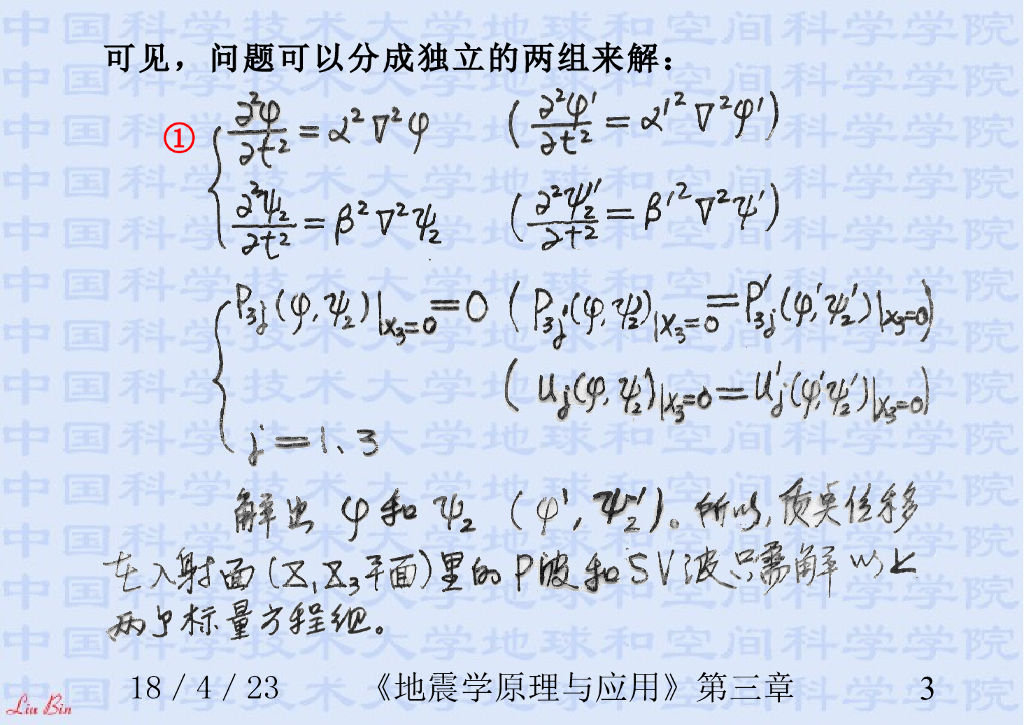 可见，问题可以分成独立的两组来解：
① ∂²φ/∂t² = α²∇²φ (∂²φ'/∂t² = α'²∇²φ')
∂²ψ₂/∂t² = β²∇²ψ₂ (∂²ψ₂'/∂t² = β'²∇²ψ')
P₃j(φ,ψ₂)|x₃=0 = 0 (P₃j(φ,ψ₂)|x₃=0 = P'₃j(φ',ψ₂')|x₃=0)
(uj(φ,ψ₂)|x₃=0 = u'j(φ',ψ₂')|x₃=0)
j = 1、3
解出 φ 和 ψ₂ (φ', ψ₂')。所以,质点位移
在入射面(X₁X₃平面)里的P波和SV波只需解以上
两个标量方程组。
18/4/23 《地震学原理与应用》第三章 3
Liu Bin
中国科学技术大学地球和空间科学学院